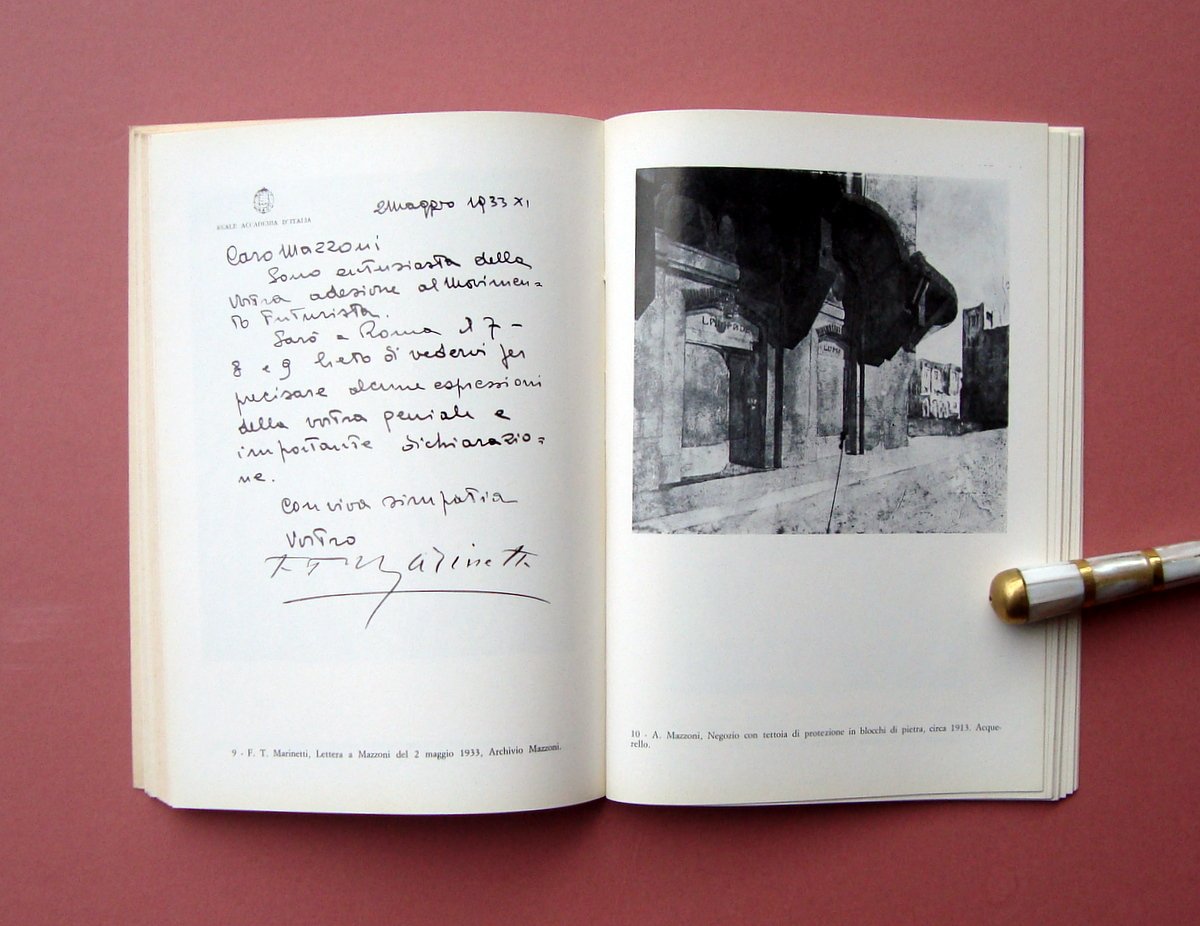 REALE ACCADEMIA D'ITALIA
2 maggio 1933 XI
Caro Mazzoni
Sono entusiasta della
vostra adesione al Movimen=
to Futurista.
Sarò a Roma il 7 –
8 e 9 lieto di vedervi per
precisare alcune espressioni
della vostra geniale e
importante dichiarazio=
ne.
Con viva simpatia
Vostro
F. T. Marinetti
9 - F. T. Marinetti, Lettera a Mazzoni del 2 maggio 1933, Archivio Mazzoni.
LAMPADE
LUMI
10 - A. Mazzoni, Negozio con tettoia di protezione in blocchi di pietra, circa 1913. Acque-
rello.